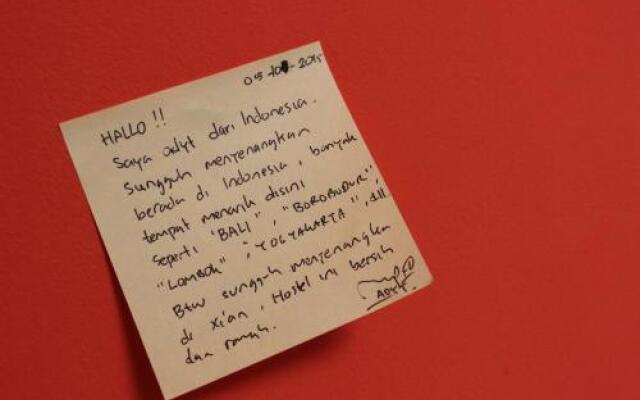 05-08-2015
HALLO !!
Saya adyt dari Indonesia.
Sungguh menyenangkan
berada di Indonesia, banyak
tempat menarik disini
seperti "BALI", "BOROBUDUR",
"LOMBOK", "YOGYAKARTA", dll.
Btw sungguh menyenangka
di Xi'an, Hostel ini bersih
dan ramah.
ADYT.